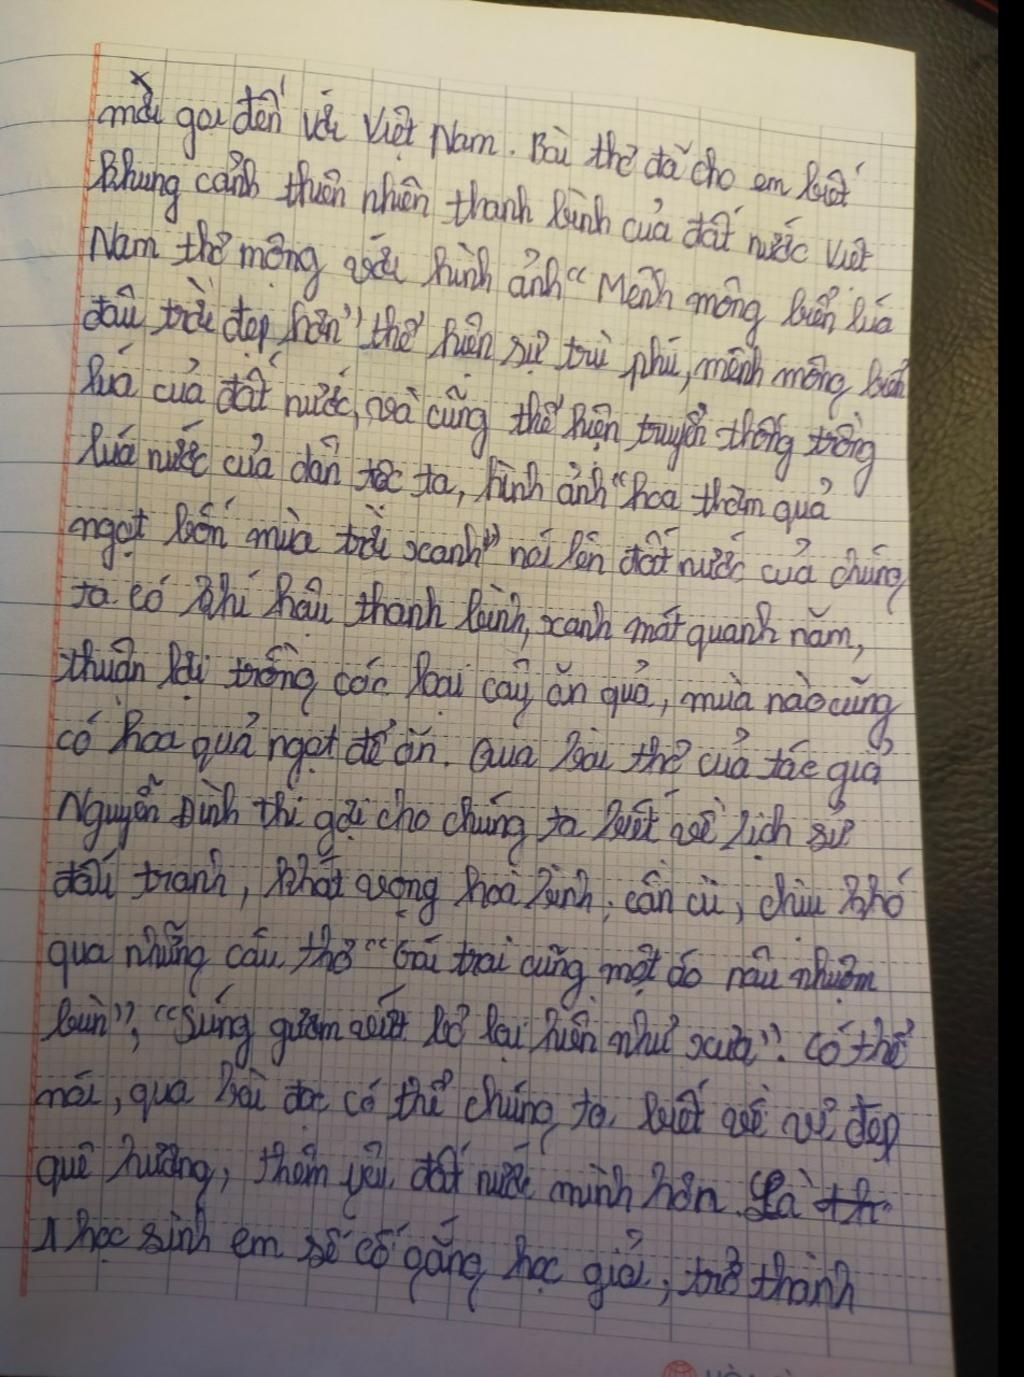 mời gọi đến với Việt Nam. Bài thơ đã cho em biết
khung cảnh thiên nhiên thanh bình của đất nước Việt
Nam thơ mộng với hình ảnh "Mênh mông biển lúa
đâu trời đẹp hơn" thể hiện sự trù phú, mênh mông biển
lúa của đất nước, và cũng thể hiện truyền thống trồng
lúa nước của dân tộc ta, hình ảnh "hoa thơm quả
ngọt bốn mùa trời xanh" nói lên đất nước của chúng
ta có khí hậu thanh bình, xanh mát quanh năm,
thuận lợi trồng các loại cây ăn quả, mùa nào cũng
có hoa quả ngọt để ăn. Qua bài thơ của tác giả
Nguyễn Đình Thi gợi cho chúng ta biết về lịch sử
đấu tranh, khát vọng hoà bình, cần cù, chịu khó
qua những câu thơ "Gái trai cũng một áo nâu nhuộm
bùn", "Súng gươm vứt bỏ lại hiền như xưa". Có thể
nói, qua bài đọc có thể chúng ta biết về vẻ đẹp
quê hương, thêm yêu đất nước mình hơn. Là
1 học sinh em sẽ cố gắng học giỏi, trở thành